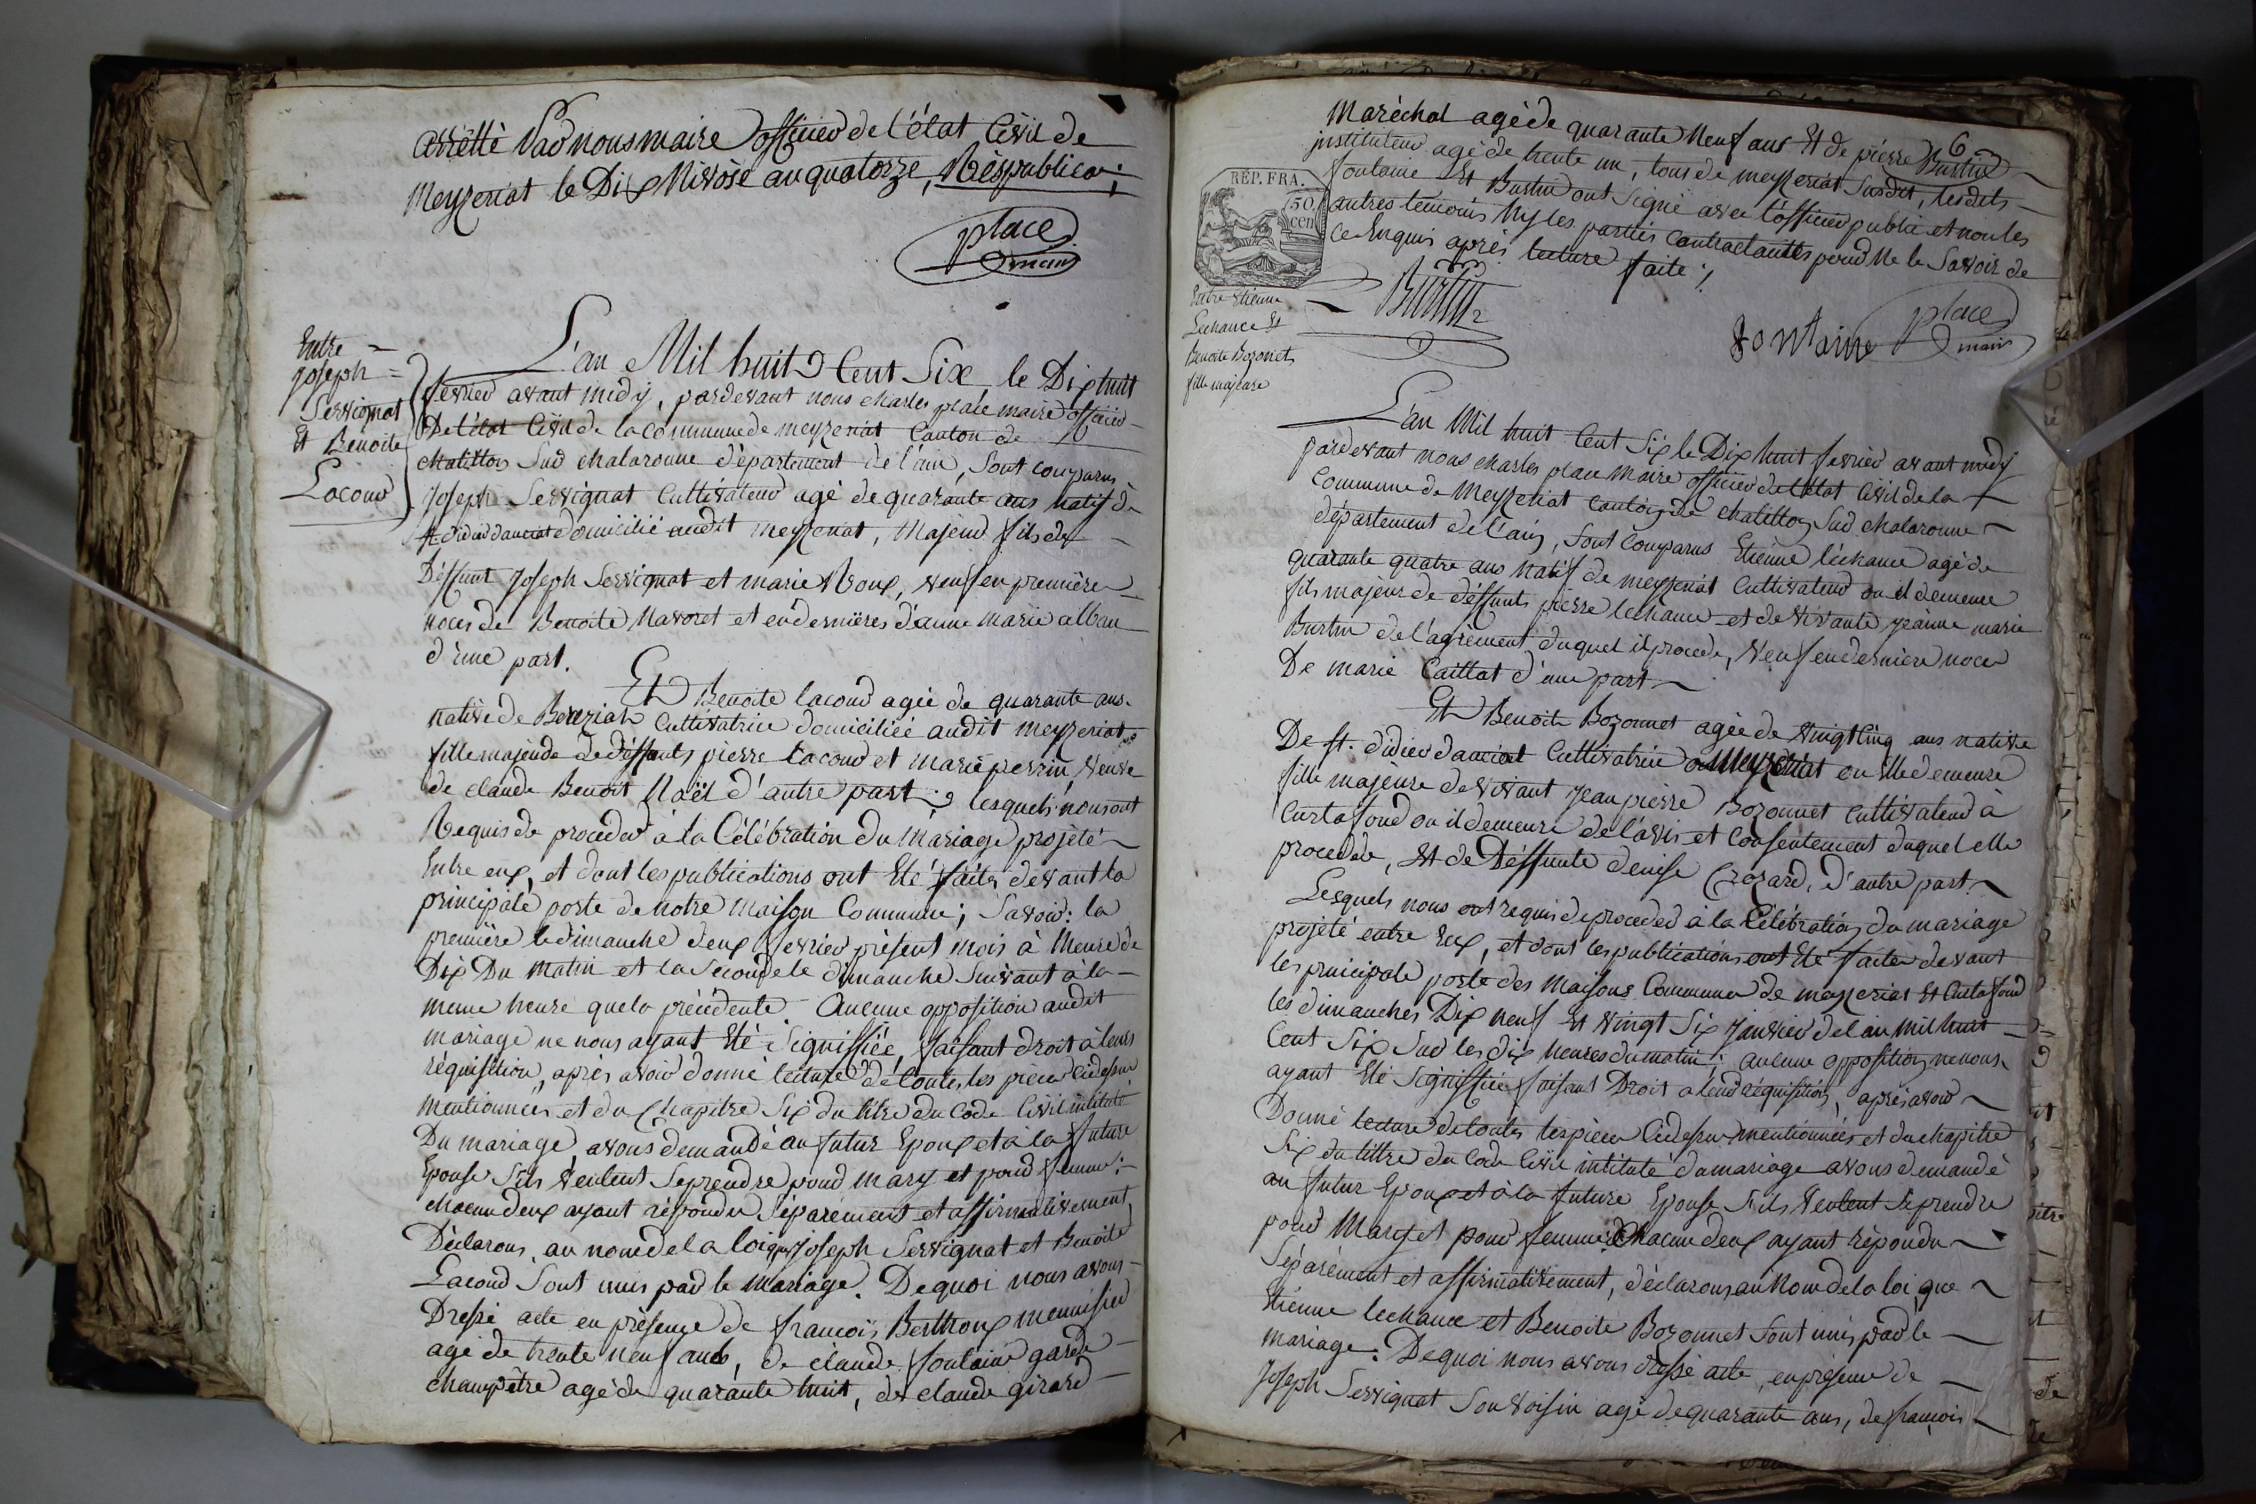 arrêtté par nous maire officier de l'état Civil de
Meyzeriat le Dix Nivôse an quatorze, Républicain;
place
maire
Entre
joseph
Servignat
Et Benoite
Lacour
L'an Mil huit Cent Six le Dix huit
fevrier avant midy, pardevant nous charles place maire officier
De l'état Civil de la Commune de meyzeriat Canton de
chatillon Sur chalaronne département de l'ain, Sont comparus
Joseph Servignat Cultivateur agé de quarante ans natif de
St didier d'auciat domicilié audit meyzeriat, Majeur fils de
Déffunt Joseph Servignat et marie Roux, veuf en premières
noces de Benoite Mavoret et en dernières d'anne marie alban
d'une part.
Et Benoite lacour agée de quarante ans
native de Bereziat Cultivatrice domiciliée audit meyzeriat
fille majeure de déffunts pierre Lacour et Marie perrin, veuve
de claude Benoit Noël d'autre part; lesquels nous ont
Requis de proceder à la Célébration du Mariage projeté
Entre eux, et dont les publications ont Eté faites devant la
principale porte de notre Maison Commune; Savoir: la
première le dimanche deux fevrier présent mois à l'heure de
Dix Du Matin et la Seconde le dimanche Suivant à la
meme heure que la précédente. Aucune opposition audit
mariage ne nous ayant Eté Signiffiée, faisant droit à leurs
réquisition, après avoir donné lecture de toutes les pièces cidessus
mentionnées et du Chapitre Six du titre du Code Civil intitulé
Du mariage, avons demandé au futur Epoux et à la future
Epouse S'ils veulent Se prendre pour Mary et pour femme;
chacun deux ayant répondu Séparement et affirmativement,
Déclarons au nom de la loi que Joseph Servignat et Benoite
Lacour Sont unis par le mariage. De quoi nous avons
Dressé acte en présence de francois Berthoux menuisier
agé de trente neuf ans, de claude fontaine garde
champêtre agé de quarante huit, de claude girard
6
Maréchal agé de quarante Neuf ans Et de pierre Burtin
instituteur agé de trente un, tous de meyzeriat Susdit, lesdits
fontaine Et Burtin ont Signé avec l'officier public et non les
autres temoins Ny les parties Contractantes pour Ne le Savoir de
ce Enquis après lecture faite;
RÉP. FRA.
50
cen
Burtin
fontaine
place
maire
Entre Etienne
Lechance Et
Benoite Bozonnet
fille majeure
L'an Mil huit Cent Six le Dix huit fevrier avant midy
pardevant nous charles place Maire officier de l'état Civil de la
Commune de Meyzeriat Canton de Chatillon Sur chalaronne
département de l'ain, Sont Comparus Etienne léchance agé de
quarante quatre ans Natif de meyzeriat Cultivateur ou il demeure
fils majeur de déffunt pierre lechance et de vivante Jeanne marie
Burtin de l'agrement duquel il procede, veuf en derniere noces
De marie Caillat d'une part
Et Benoite Bozonnet agée de vingt Cinq ans native
De St. didier d'auciat Cultivatrice a Meyzeriat ou Elle demeure
fille majeure de vivant Jean pierre Bozonnet Cultivateur à
Curtafond ou il demeure de l'avis et Consentement duquel elle
procede, Et de Déffunte denise Crozard, d'autre part.
Lesquels nous ont requis de proceder à la Célébration du mariage
projété entre Eux, et dont les publications ont Eté faites devant
les principale porte des Maisons Commune de meyzeriat Et Curtafond
les dimanches Dix neuf Et vingt Six Janvier de l'an mil huit
Cent Six Sur les dix heures du matin; aucune opposition ne nous
ayant Eté Signiffiée faisant Droit a leur réquisition, après avoir
Donné lecture de toutes les pièces Cidessus mentionnées et du chapitre
Six du tittre du Code Civil intitulé du mariage avons demandé
au futur Epoux et à la future Epouse S'ils veulent Se prendre
pour Mary et pour femme Chacun deux ayant répondu
Séparément et affirmativement, déclarons au Nom de la loi, que
Etienne lechance et Benoite Bozonnet Sont unis par le
mariage. De quoi nous avons dressé acte, en présence de
Joseph Servignat Son voisin agé de quarante ans, de françois